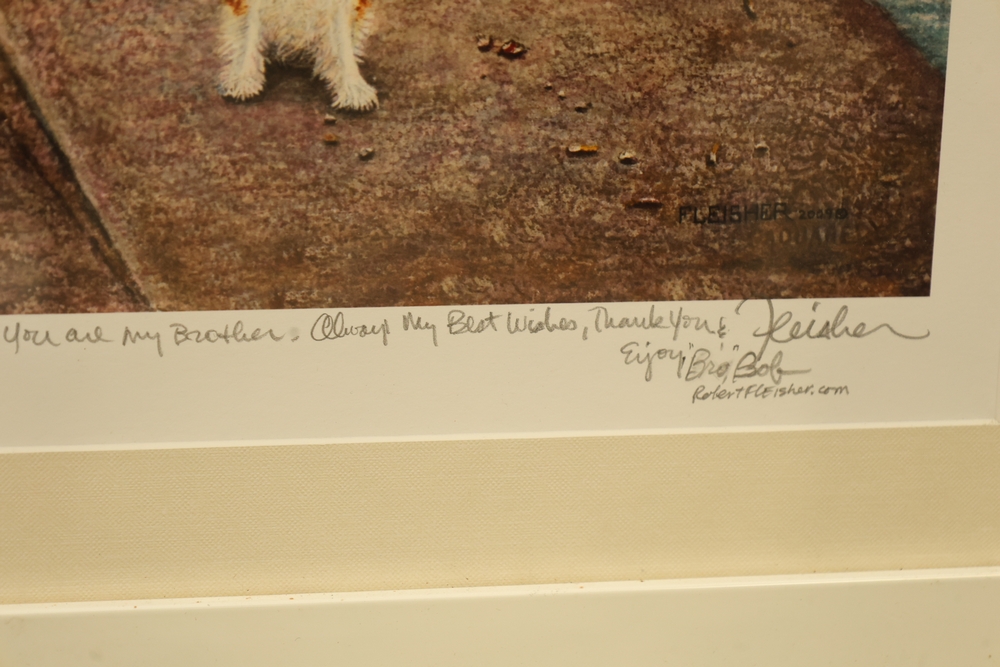 FLEISHER
You are my Brother. Always My Best Wishes, Thank You & Fleisher
Enjoy, "Bro," Bob
RobertFleisher.com